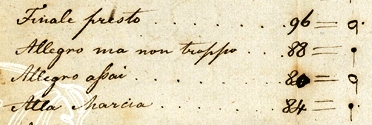 Finale presto . . . . . . . . . 96 =
Allegro ma non troppo . . . 88 =
Allegro assai . . . . . . . . . 80 =
Alla Marcia . . . . . . . . . 84 =